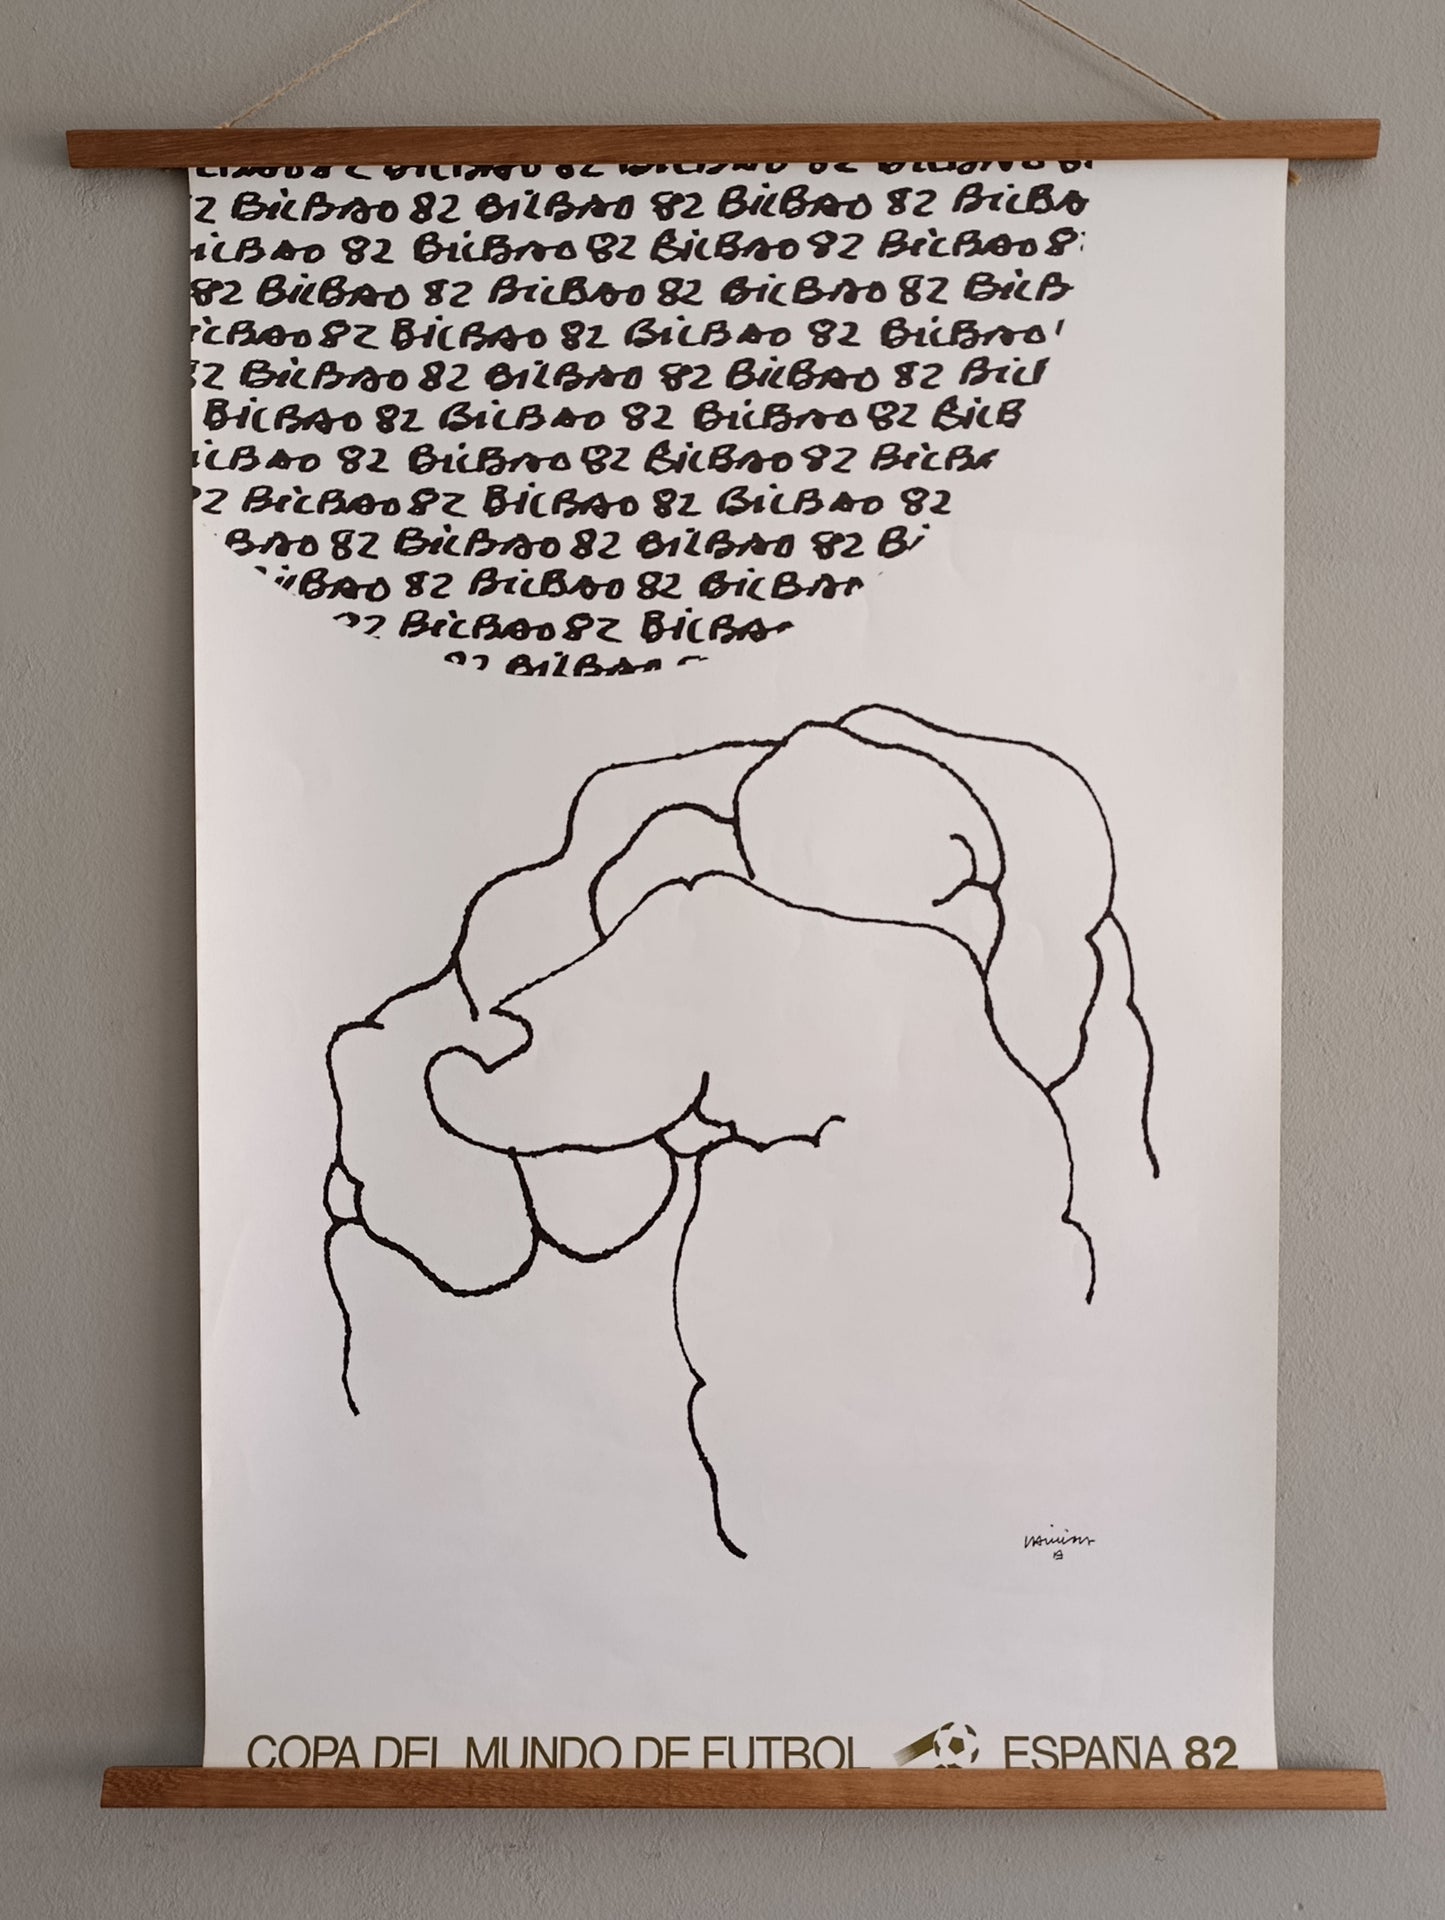 BilBAO 82 BilBAO 82 BilBAO 82 BilBAO 8
2 BilBAO 82 BilBAO 82 BilBAO 82 BilBA
ilBAO 82 BilBAO 82 BilBAO 82 BilBAO 8
82 BilBAO 82 BilBAO 82 BilBAO 82 BilB
ilBAO 82 BilBAO 82 BilBAO 82 BilBAO
82 BilBAO 82 BilBAO 82 BilBAO 82 Bil
BilBAO 82 BilBAO 82 BilBAO 82 BilB
ilBAO 82 BilBAO 82 BilBAO 82 BilBA
2 BilBAO 82 BilBAO 82 BilBAO 82
BAO 82 BilBAO 82 BilBAO 82 Bi
ilBAO 82 BilBAO 82 BilBAO
82 BilBAO 82 BilBA
82 BilBAO
COPA DEL MUNDO DE FUTBOL ESPAÑA 82